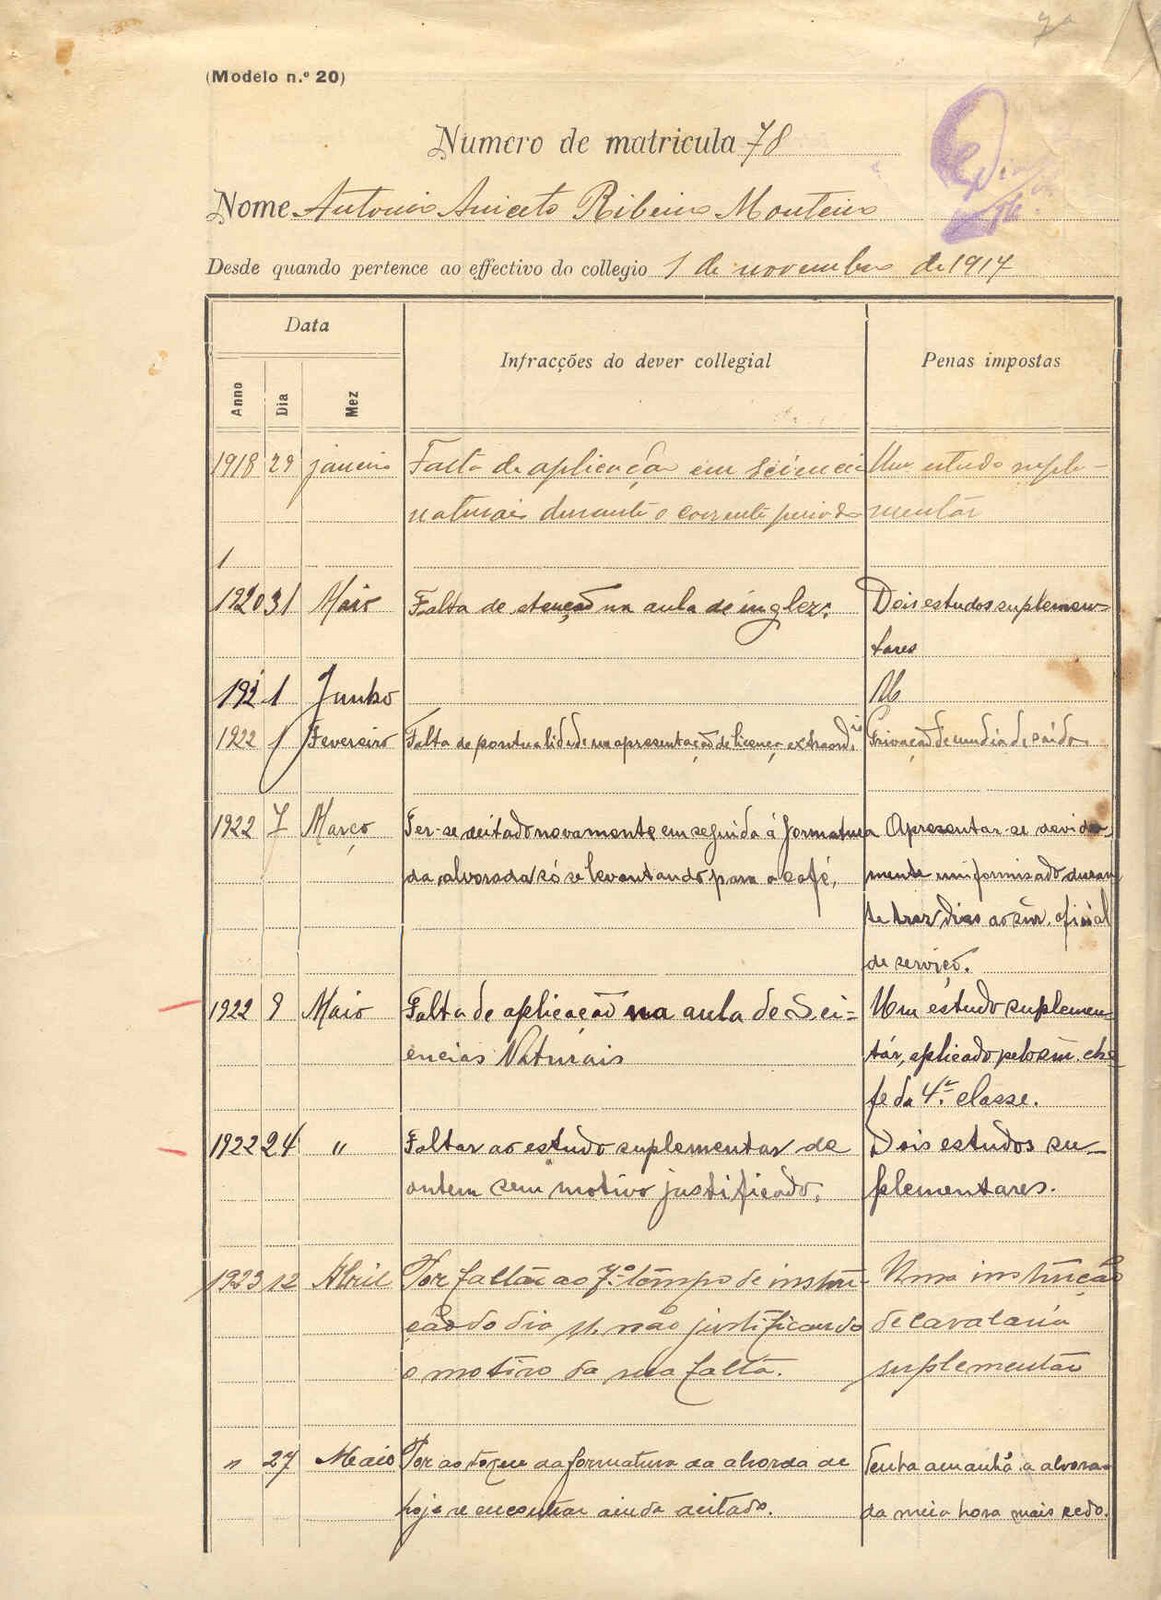 7ª
(Modelo n.º 20)
Numero de matricula 78
Nome Antonio Aniceto Ribeiro Monteiro
Desde quando pertence ao effectivo do collegio 1 de novembro de 1917
Data
Infracções do dever collegial
Penas impostas
Anno
Dia
Mez
1918 29 janeiro Falta de aplicação em sciencias Um estudo suple-
naturais durante o corrente periodo mentar
1
1920 31 Maio Falta de atenção na aula de inglez. Dois estudos suplemen-
tares
1921 1 Junho
1922 1 Fevereiro Falta de pontualidade na apresentação de licença extraord.ia Privação de um dia de saída
1922 7 Março Ter-se deitado novamente em seguida á formatura Apresentar-se devida-
da alvorada só se levantando para o café. mente uniformisado duran
te trez dias ao snr. oficial
de serviço.
1922 9 Maio Falta de aplicação na aula de Sci- Um estudo suplemen-
encias Naturais tár, aplicado pelo snr. che-
fe da 4.ª classe.
1922 24 " Faltar ao estudo suplementar de Dois estudos su-
ontem sem motivo justificado. plementares.
1923 12 Abril Por faltar ao 7.º tempo de instru- Uma instrução
ção do dia 11 não justificando de cavalaria
o motivo da sua falta. suplementar
" 27 Maio Por ao toque da formatura da alvorda de Tenha amanhã a alvora-
hoje se encontrar ainda deitado. da meia hora mais cedo.